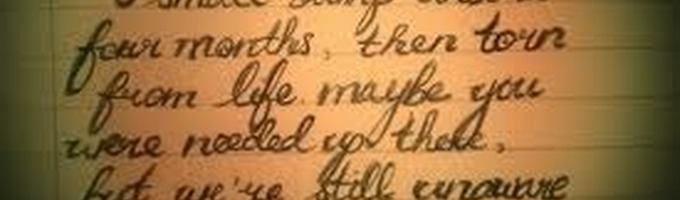 small bump
four months, then torn
from life. maybe you
were needed up there,
but we're still unaware